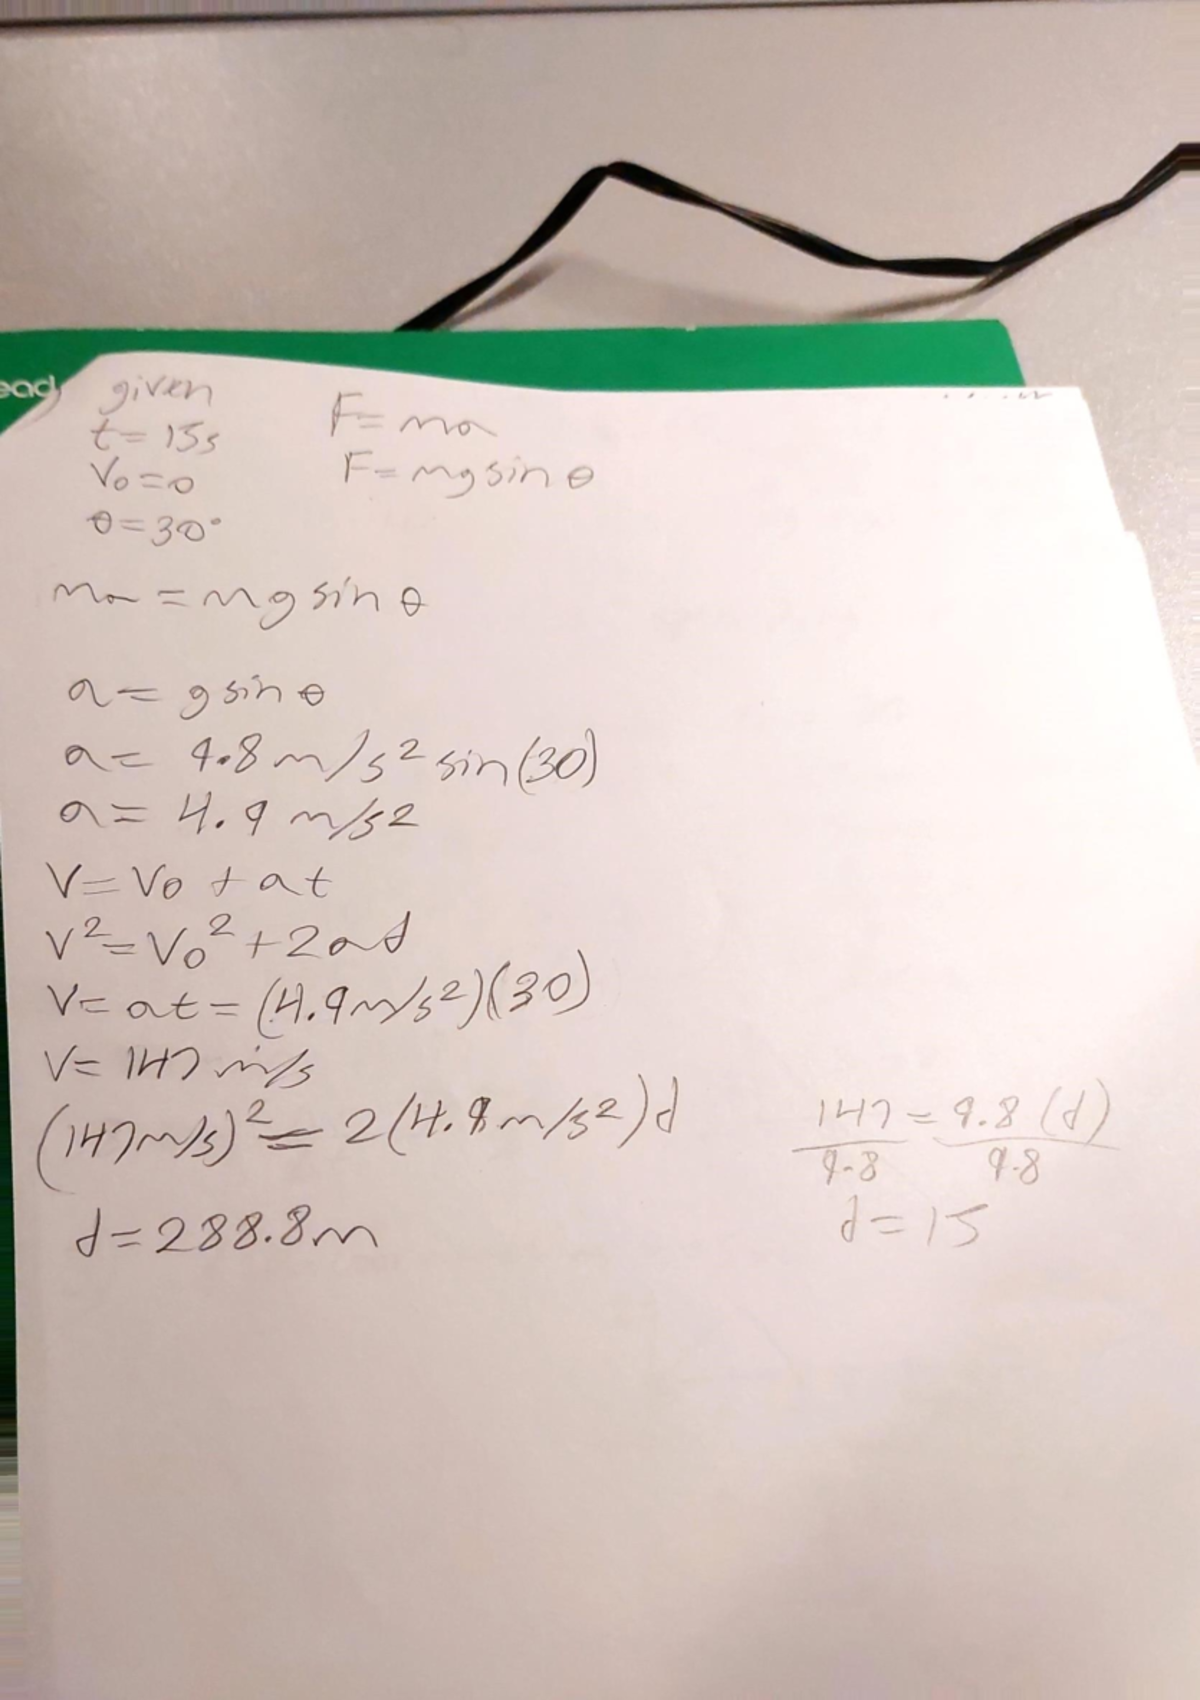 ead
given
t = 15s
V₀ = 0
θ = 30°
F = ma
F = mg sin θ
ma = mg sin θ
a = g sin θ
a = 9.8 m/s² sin(30)
a = 4.9 m/s2
V = V₀ + at
V² = V₀² + 2ad
V = at = (4.9 m/s²)(30)
V = 147 m/s
(147 m/s)² = 2(4.9 m/s²)d
d = 288.8m
147 = 9.8 (d)
9.8 9.8
d = 15